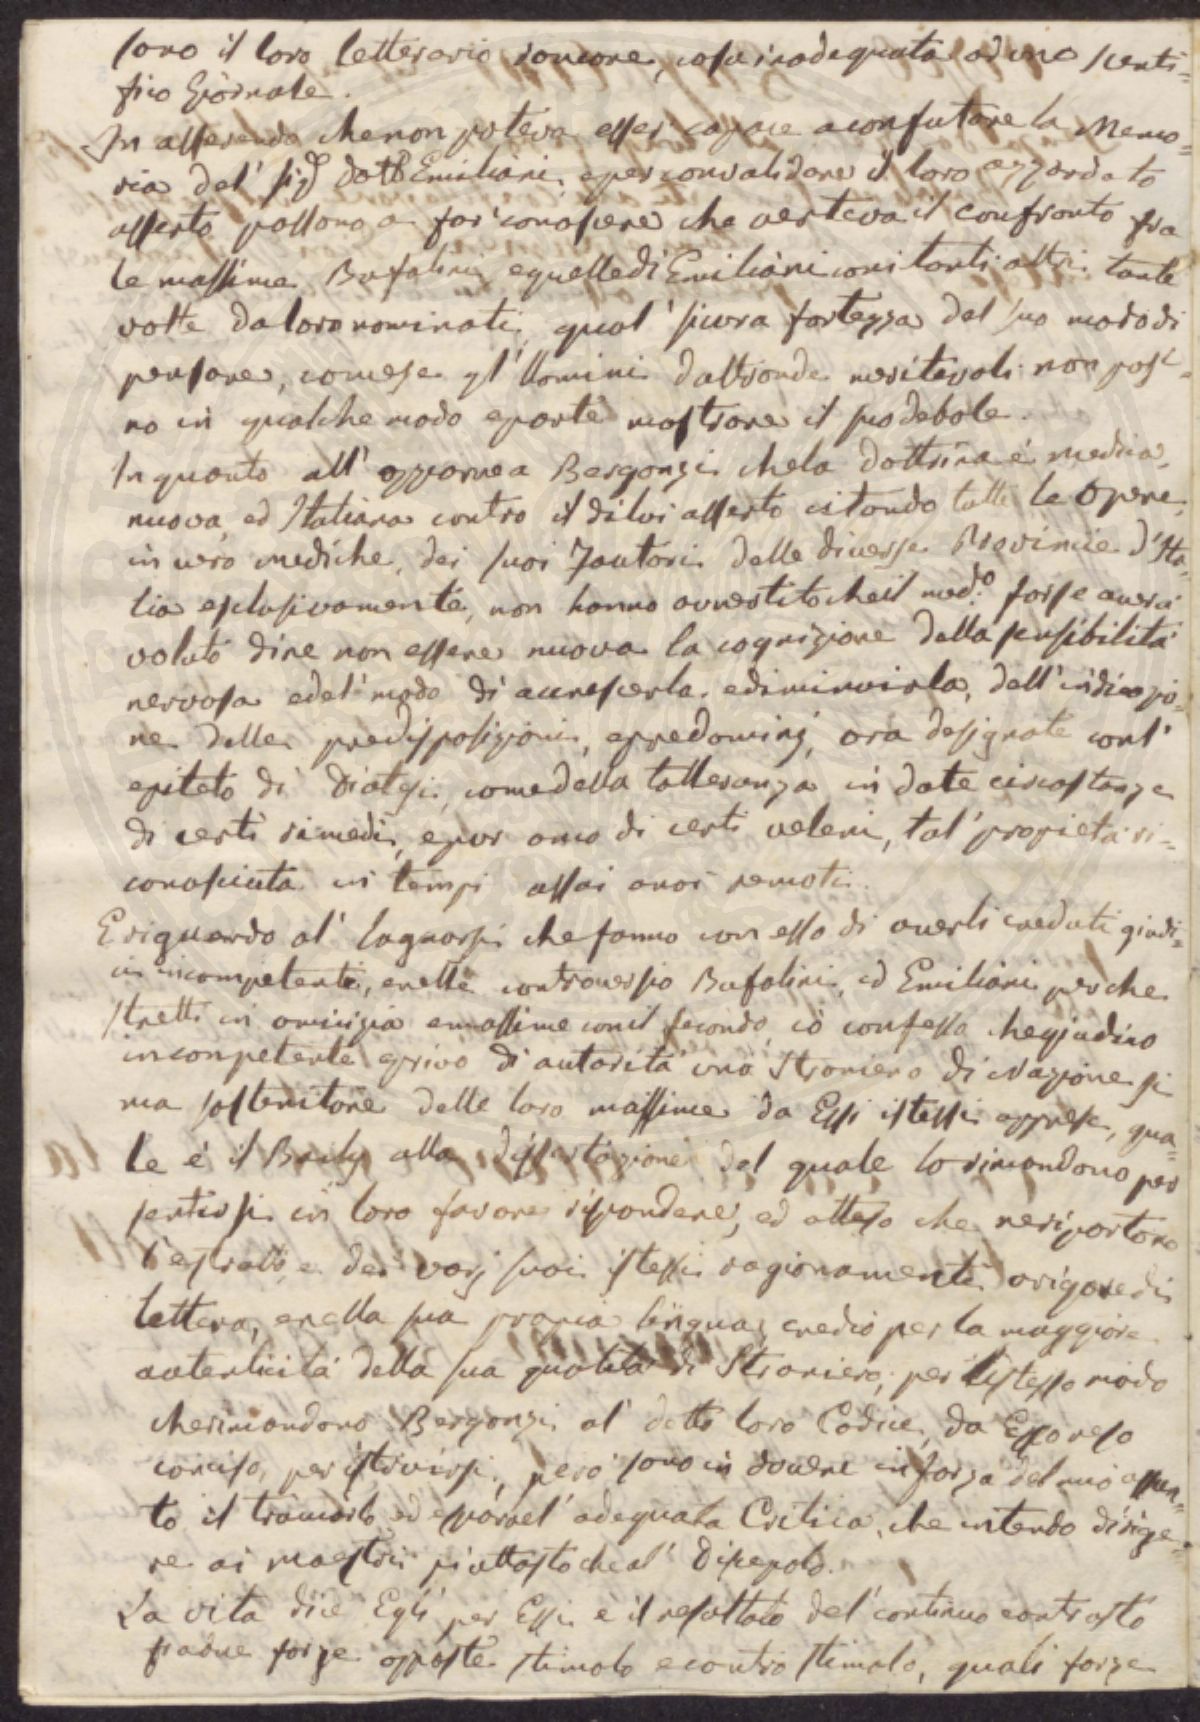 sono il loro letterario rancore, cosa inadequata ad uno scenti=
fico Giornale.
In asserendo che non poteva esser capace a confutare la Memo=
ria del' Sig.r Dott.r Emiliani, e per convalidare il loro azzardato
asserto passono a far' conoscere che verteva il confronto fra
le massime Bufalini e quelle di Emiliani con i tanti altri tante
volte da loro nominati, qual' sicura fortezza del suo modo di
pensare, come se gl' Uomini d'altronde meritevoli non possi=
no in qualche modo e parte mostrare il suo debole.
In quanto all' opporre a Bergonzi che la dottrina è medica,
nuova, ed Italiana contro il di lui asserto citando tutte le Opere,
in vero mediche, dei suoi Fautori delle diverse Provincie d'Ita=
lia esclusivamente, non hanno avvertito che il med.o forse averà
voluto dire non essere nuova la cognizione della sensibilità
nervosa e del' modo di accrescerla, e diminuirla, dell' indicazio=
ne delle predisposizioni, e predominj, ora designate coll'
epiteto di Diatesi, come della tolleranza in date circostanze
di certi rimedi, e pur anco di certi veleni, tal' proprietà ri=
conosciuta in tempi assai a noi remoti.
E riguardo al' lagnarsi che fanno con esso di averli creduti giudi=
ci incompetenti, nella controversia Bufalini, ed Emiliani perchè
stretti in amicizia e massime con il secondo, ciò confessa che giudico
incompetente e privo di autorità uno Straniero di Nazione si
ma sostenitore delle loro massime da Essi istessi apprese, qua=
le è il Broily alla dissertazione del quale lo rimandono per
sentirsi in loro favore rispondere, ed atteso che ne riportono
l'estratto, e dei varj suoi istessi ragionamenti a rigore di
lettera, e nella sua propria lingua, credio per la maggiore
autenticità della sua qualità di Straniero, per l'istesso modo
che rimandono Bergonzi al' detto loro Codice, da Esso reso
conciso, per istruirsi, però sono in dovere in forza del mio assun=
to il tramarlo ed esporael' adeguata Critica, che intendo dirige=
re ai maestri piuttosto che al' Discepolo.
La vita dice Egli per Essi è il resultato del' continuo contrasto
fra due forze opposte stimolo e contro stimolo, quali forze